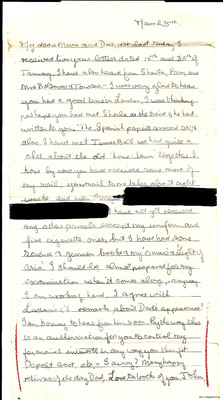 March 3rd.
My dear Mum and Dad, at last today I
received two your letters dated 15th and 30th of
January. I have also heard from Sheila, Pam, and
Mrs Bowson. I was very glad to hear
you had a good time in London, I was thinking
perhaps you had met Sheila as she said she had
written to you. The Spanish papers arrived OK
also I have met James Ball we had quite a
chat about the old home town together. I
hope by now you have received some more of
my mail, your mail to me takes about eight
weeks and
have not yet received
any other parcels except my uniform and
five cigarette ones, but I have had some
German books
also. I should be almost prepared for my
examination when it comes along, anyway
I am working hard. I agree with
remark about Dad's appearance!
I am hoping to hear from him soon. By the way this
is an authorisation for you to control my
financial interests in any way you think fit.
Deposit acct, etc - Savvy? Many happy
returns of the day Dad, Love to both of you, John.